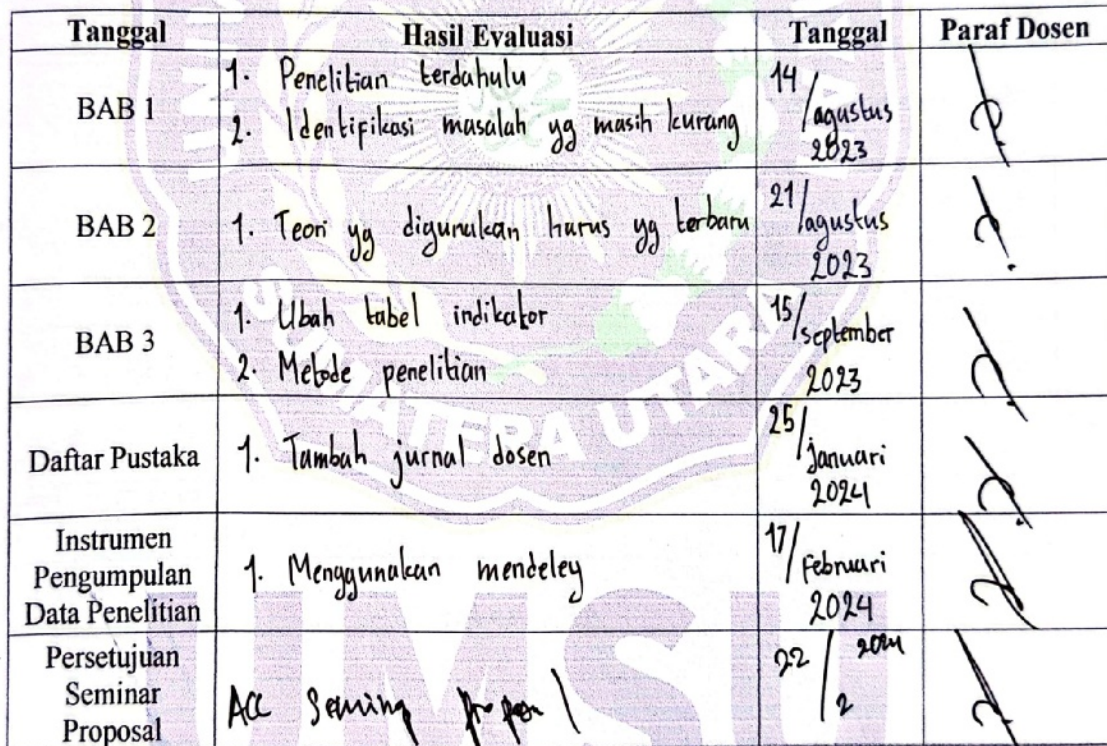 Tanggal Hasil Evaluasi Tanggal Paraf Dosen
BAB 1
1. Penelitian terdahulu
2. Identifikasi masalah yg masih kurang
14/agustus
2023
BAB 2
1. Teori yg digunakan harus yg terbaru
21/agustus
2023
BAB 3
1. Ubah tabel indikator
2. Metode penelitian
15/september
2023
Daftar Pustaka
1. Tambah jurnal dosen
25/januari
2024
Instrumen
Pengumpulan
Data Penelitian
1. Menggunakan mendeley
17/Februari
2024
Persetujuan
Seminar
Proposal
ACC
22/2 2024
SUMATERA UTARA
UMSU